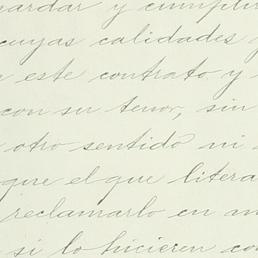 ardar y cumplir
cuyas calidades
este contrato y
con su tenor, sin
otro sentido ni
que el que litera
reclamarlo en
si lo hicieren co